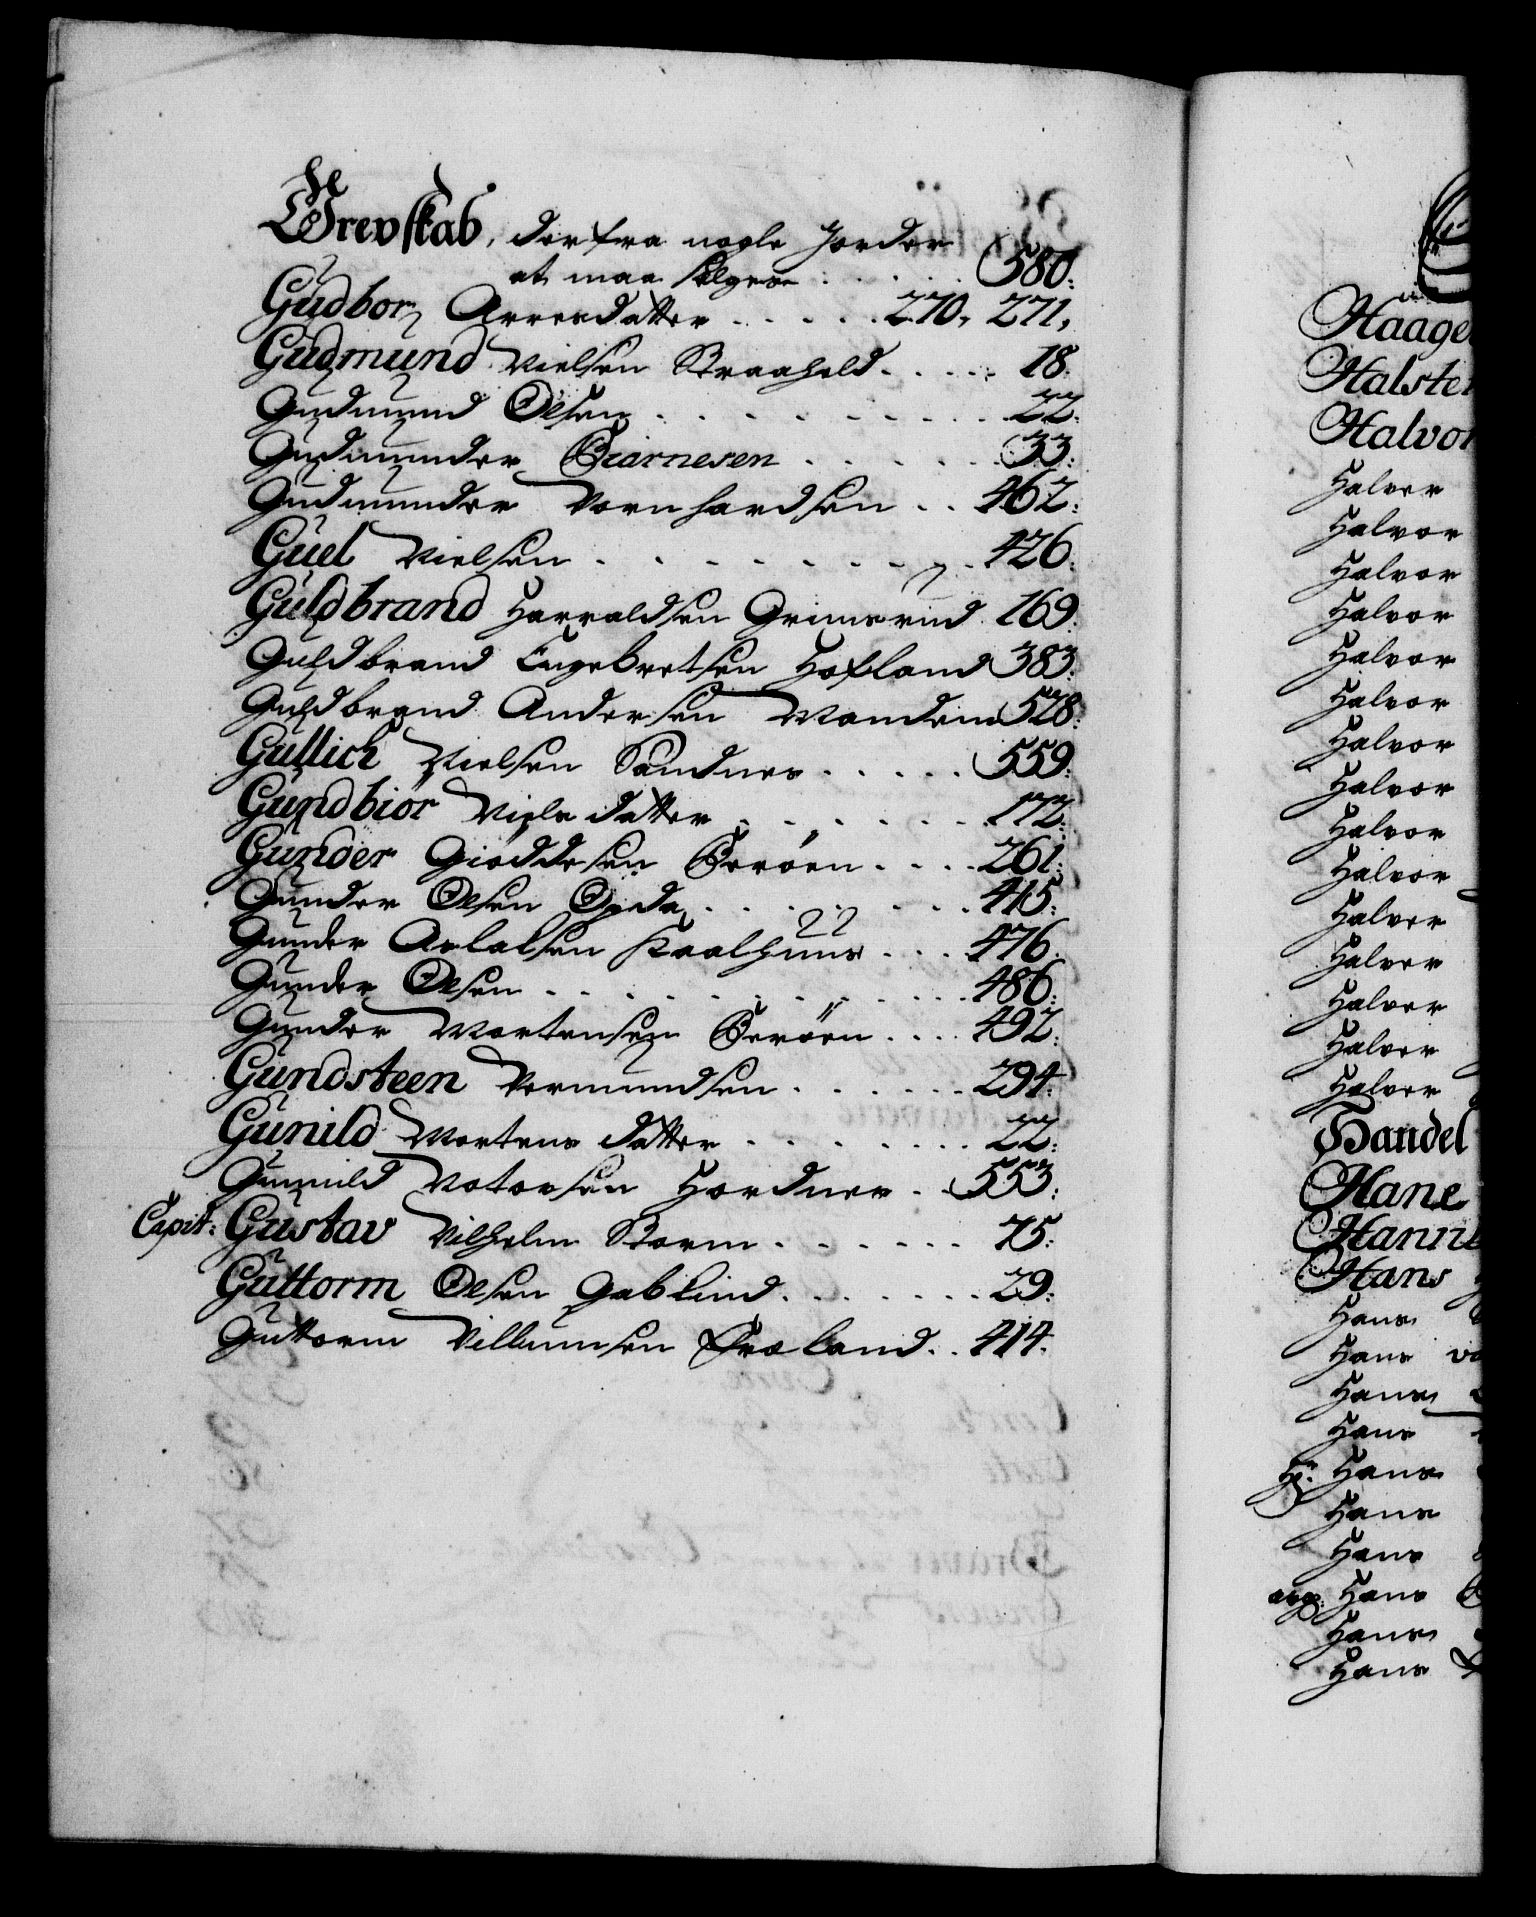 Grevskab, derfra nogle Jorder
at maa sælges . . . . . 580.
Gudbor Arnesdatter . . . . . 270, 271,
Gudmund Nielsen Braahold . . . . . 18.
Gudmund Olsen . . . . . . . . . 22.
Gudmunder Biarnesen . . . . . . 33.
Gudmunder Vernhardsen . . 462.
Guel Nielsen . . . . . . . . 426.
Guldbrand Harraldsen Grimsrud 169.
Guldbrand Engebretsen Hofland 383.
Guldbrand Andersen 528.
Gullich Nielsen Sandnes . . . . . 559.
Gundbiör Niels datter . . . . . . 172.
Gunder Giöddesen Beröen . . . . 261.
Gunder Olsen Opda . . . . . . . 415.
Gunder Aslaksen Kaalhuus . . . 476.
Gunder Olsen . . . . . . . . . . . 486.
Gunder Mortensen Beröen . . . . 492.
Gundsteen Vermundsen . . . . . . 294.
Gunild Mortens datter . . . . . . . 22.
Gunnild Hordner . . 553.
Capit: Gustav Vilhelm Storm . . . . . . 75.
Guttorm Olsen Gablind . . . . . . . 29.
Guttorm Villumsen Fræland . . 414.
Haage
Halste
Halvor
Halvor
Halvor
Halvor
Halvor
Halvor
Halvor
Halvor
Halvor
Halvor
Halvor
Halvor
Halvor
Halvor
Halvor
Halvor
Handel
Hane
Hann
Hans
Hans
Hans
Hans
Hans
Hr. Hans
Hans
Hans
Hans
Hans
Hans